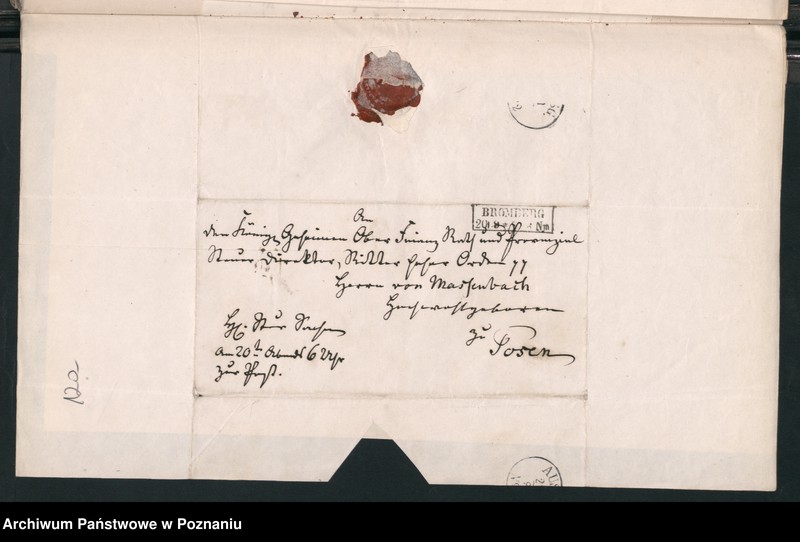 BROMBERG
An
den Königl. Geheimen Ober Finanz Rath und Provinzial
Steuer Direktor, Ritter hoher Orden pp
Herrn von Massenbach
Hochwohlgeboren
zu
Posen
Steuer Sachen
am 20ten Abends 6 Uhr
zur Post.
Archiwum Państwowe w Poznaniu